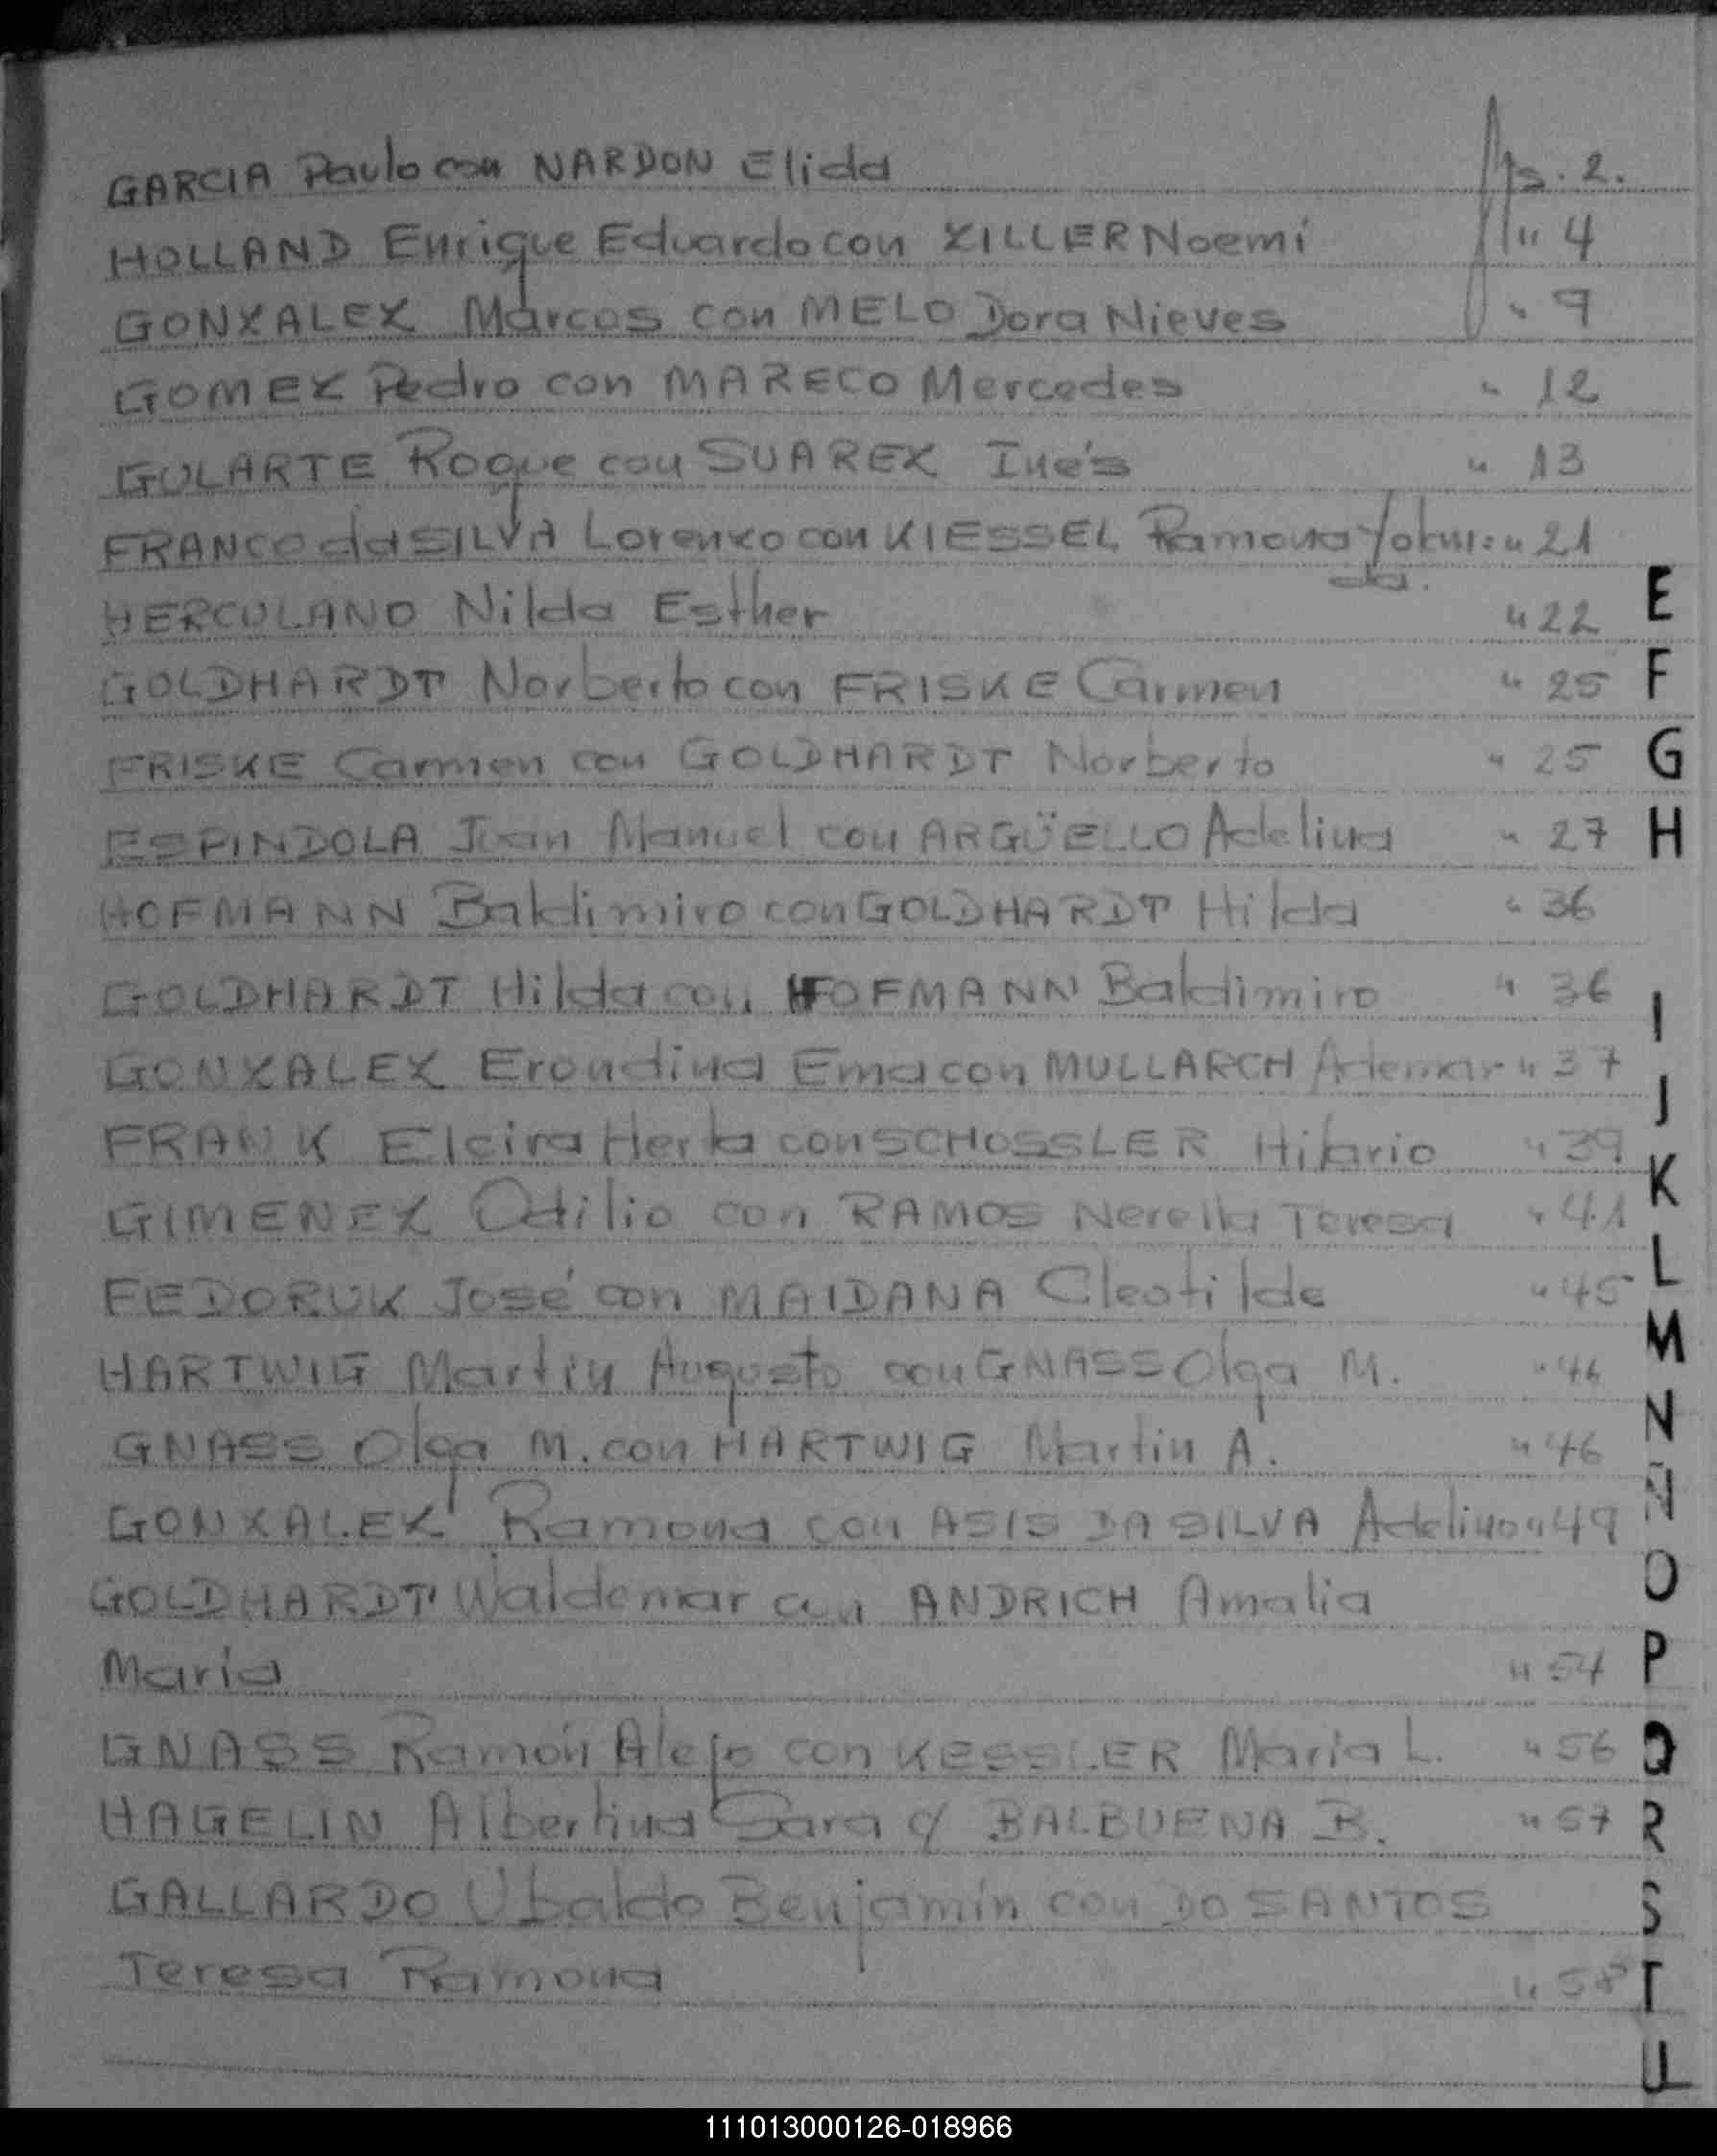 GARCIA Paulo con NARDON Elida fjs. 2.
HOLLAND Enrique Eduardo con ZILLER Noemi " 4
GONZALEZ Marcos con MELO Dora Nieves " 9
GOMEZ Pedro con MARECO Mercedes " 12
GULARTE Roque con SUAREZ Inés " 13
FRANCO da SILVA Lorenzo con KIESSEL Ramona " 21
HERCULANO Nilda Esther " 22
GOLDHARDT Norberto con FRISKE Carmen " 25
FRISKE Carmen con GOLDHARDT Norberto " 25
ESPINDOLA Juan Manuel con ARGÜELLO Adelina " 27
HOFMANN Baldimiro con GOLDHARDT Hilda " 36
GOLDHARDT Hilda con HOFMANN Baldimiro " 36
GONZALEZ Erondina Ema con MULLARCH Ademar " 37
FRANK Elcira Herta con SCHOSSLER Hilario " 39
GIMENEZ Odilio con RAMOS Nerella Teresa " 41
FEDORUK José con MAIDANA Cleotilde " 45
HARTWIG Martin Augusto con GNASS Olga M. " 46
GNASS Olga M. con HARTWIG Martin A. " 46
GONZALEZ Ramona con ASIS DA SILVA Adelino " 49
GOLDHARDT Waldemar con ANDRICH Amalia
Maria " 54
GNASS Ramón Alejo con KESSLER Maria L. " 56
HAGELIN Albertina Sara c/ BALBUENA B. " 57
GALLARDO Ubaldo Benjamín con DO SANTOS
Teresa Ramona " 58
E
F
G
H
I
J
K
L
M
N
Ñ
O
P
Q
R
S
T
U
111013000126-018966